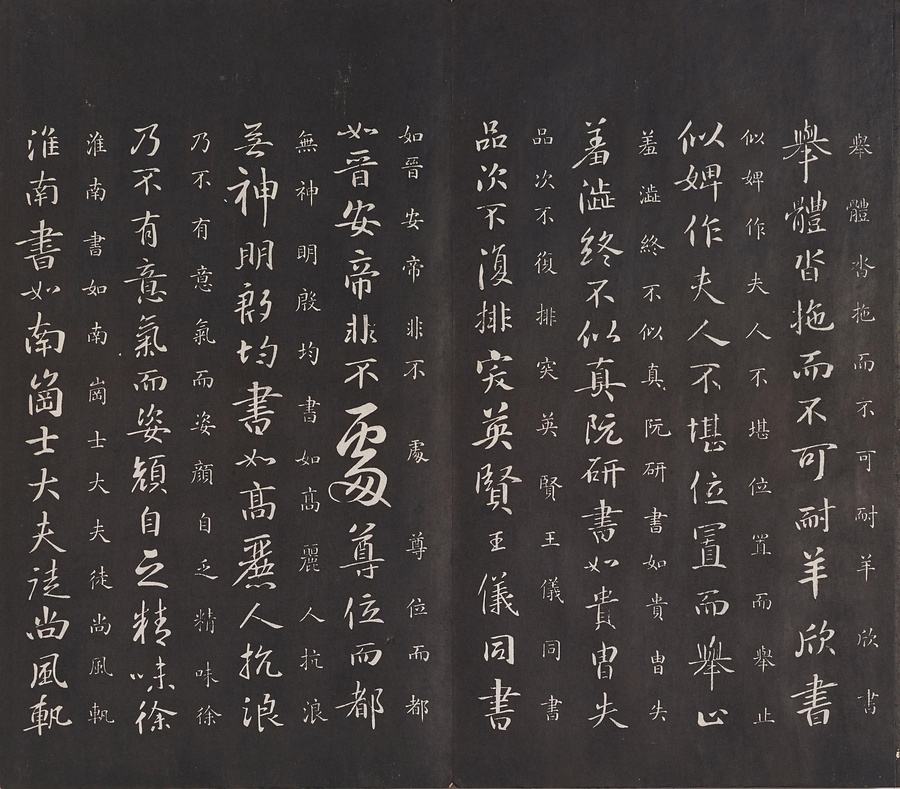 舉體沓拖而不可耐羊欣書
舉體沓拖而不可耐羊欣書
似婢作夫人不堪位置而舉止
似婢作夫人不堪位置而舉止
羞澁終不似真阮研書如貴胄失
羞澁終不似真阮研書如貴胄失
品次不復排突英賢王儀同書
品次不復排突英賢王儀同書
如晉安帝非不處尊位而都
如晉安帝非不處尊位而都
無神明殷均書如高麗人抗浪
无神明殷均書如高麗人抗浪
乃不有意氣而姿顏自乏精味徐
乃不有意氣而姿顏自乏精味徐
淮南書如南崗士大夫徒尚風軌
淮南書如南崗士大夫徒尚風軌